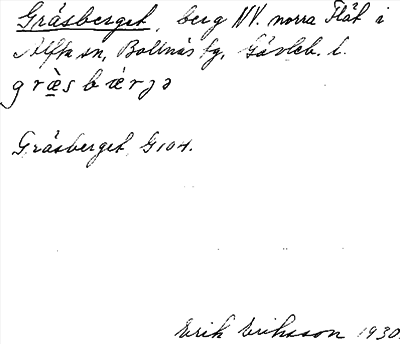 Gräsberget, berg NV. norra Flät i
Alfta sn, Bollnäs tg, Gävleb. l.
græ̀sbæ̀rjə
Gräsberget, G104.
Erik Eriksson 1930.